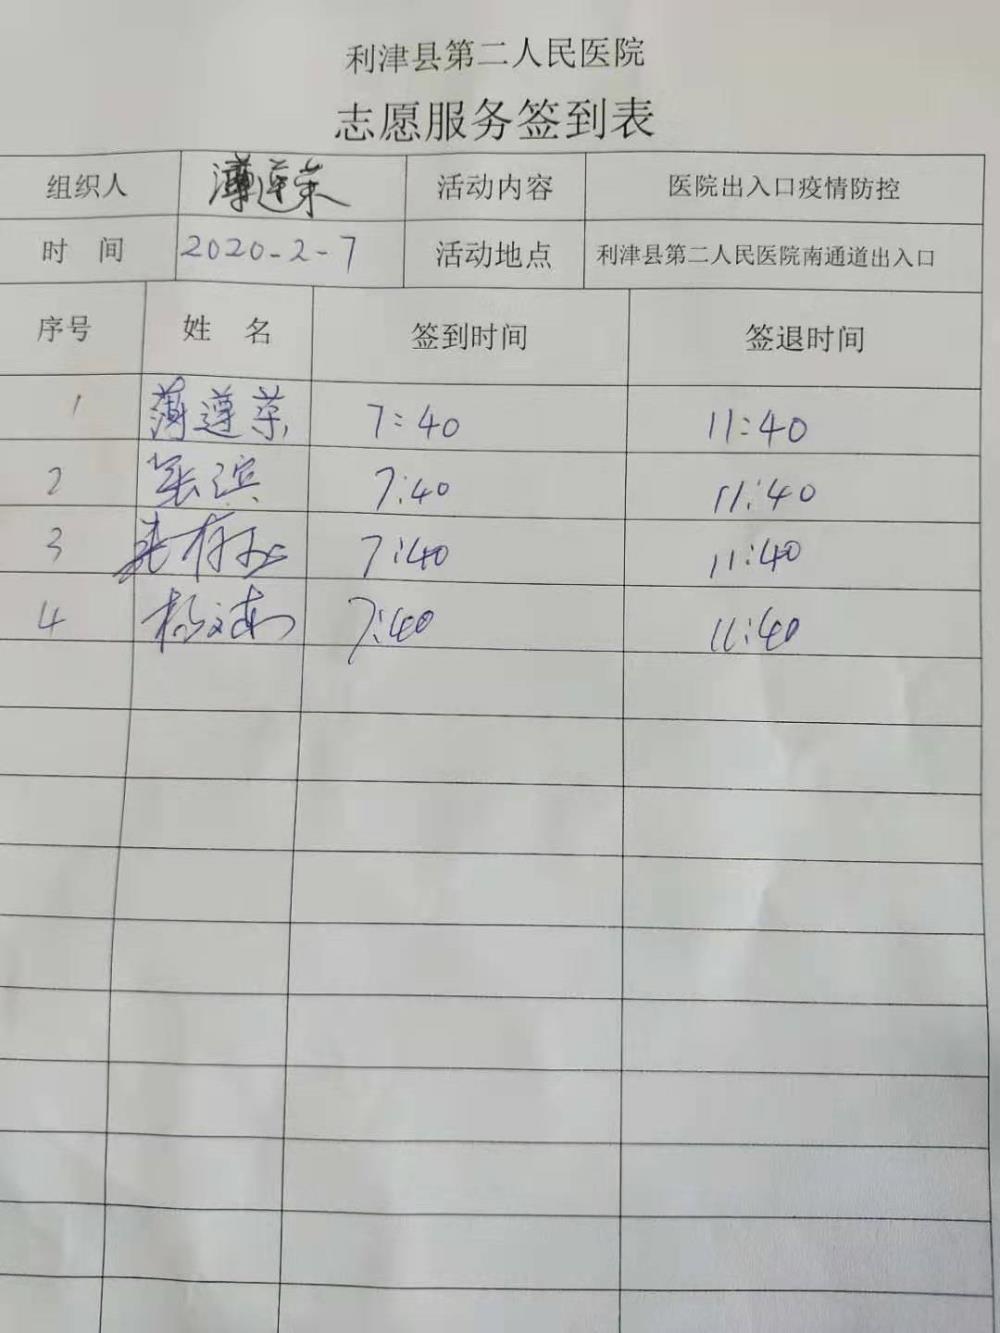 利津县第二人民医院
志愿服务签到表
组织人 薄遵荣 活动内容 医院出入口疫情防控
时 间 2020-2-7 活动地点 利津县第二人民医院南通道出入口
序号 姓 名 签到时间 签退时间
1 薄遵荣 7:40 11:40
2 张滨 7:40 11:40
3 7:40 11:40
4 杨文南 7:40 11:40